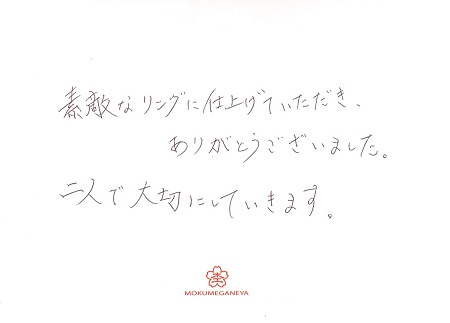 素敵なリングに仕上げていただき、
ありがとうございました。
二人で大切にしていきます。
杢
MOKUMEGANEYA